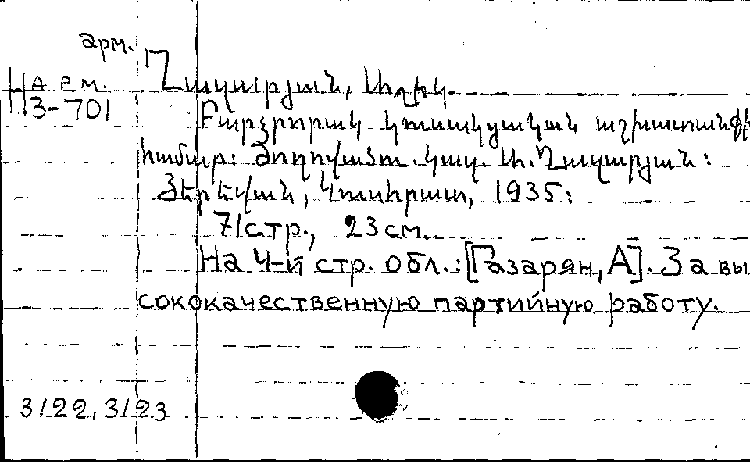 арм.
На ем. Ղազարյան, Մելիք.
З-701
Բարձրորակ կուսակցական աշխատանքի
համար: Ժողովածու. Կազ. Մ. Ղազարյան:
Յերեվան, Կուսհրատ, 1935:
71стр., 23см.
На 4-й стр. обл.: [Газарян, А]. За вы
сококачественную партийную работу.
3122, 3123